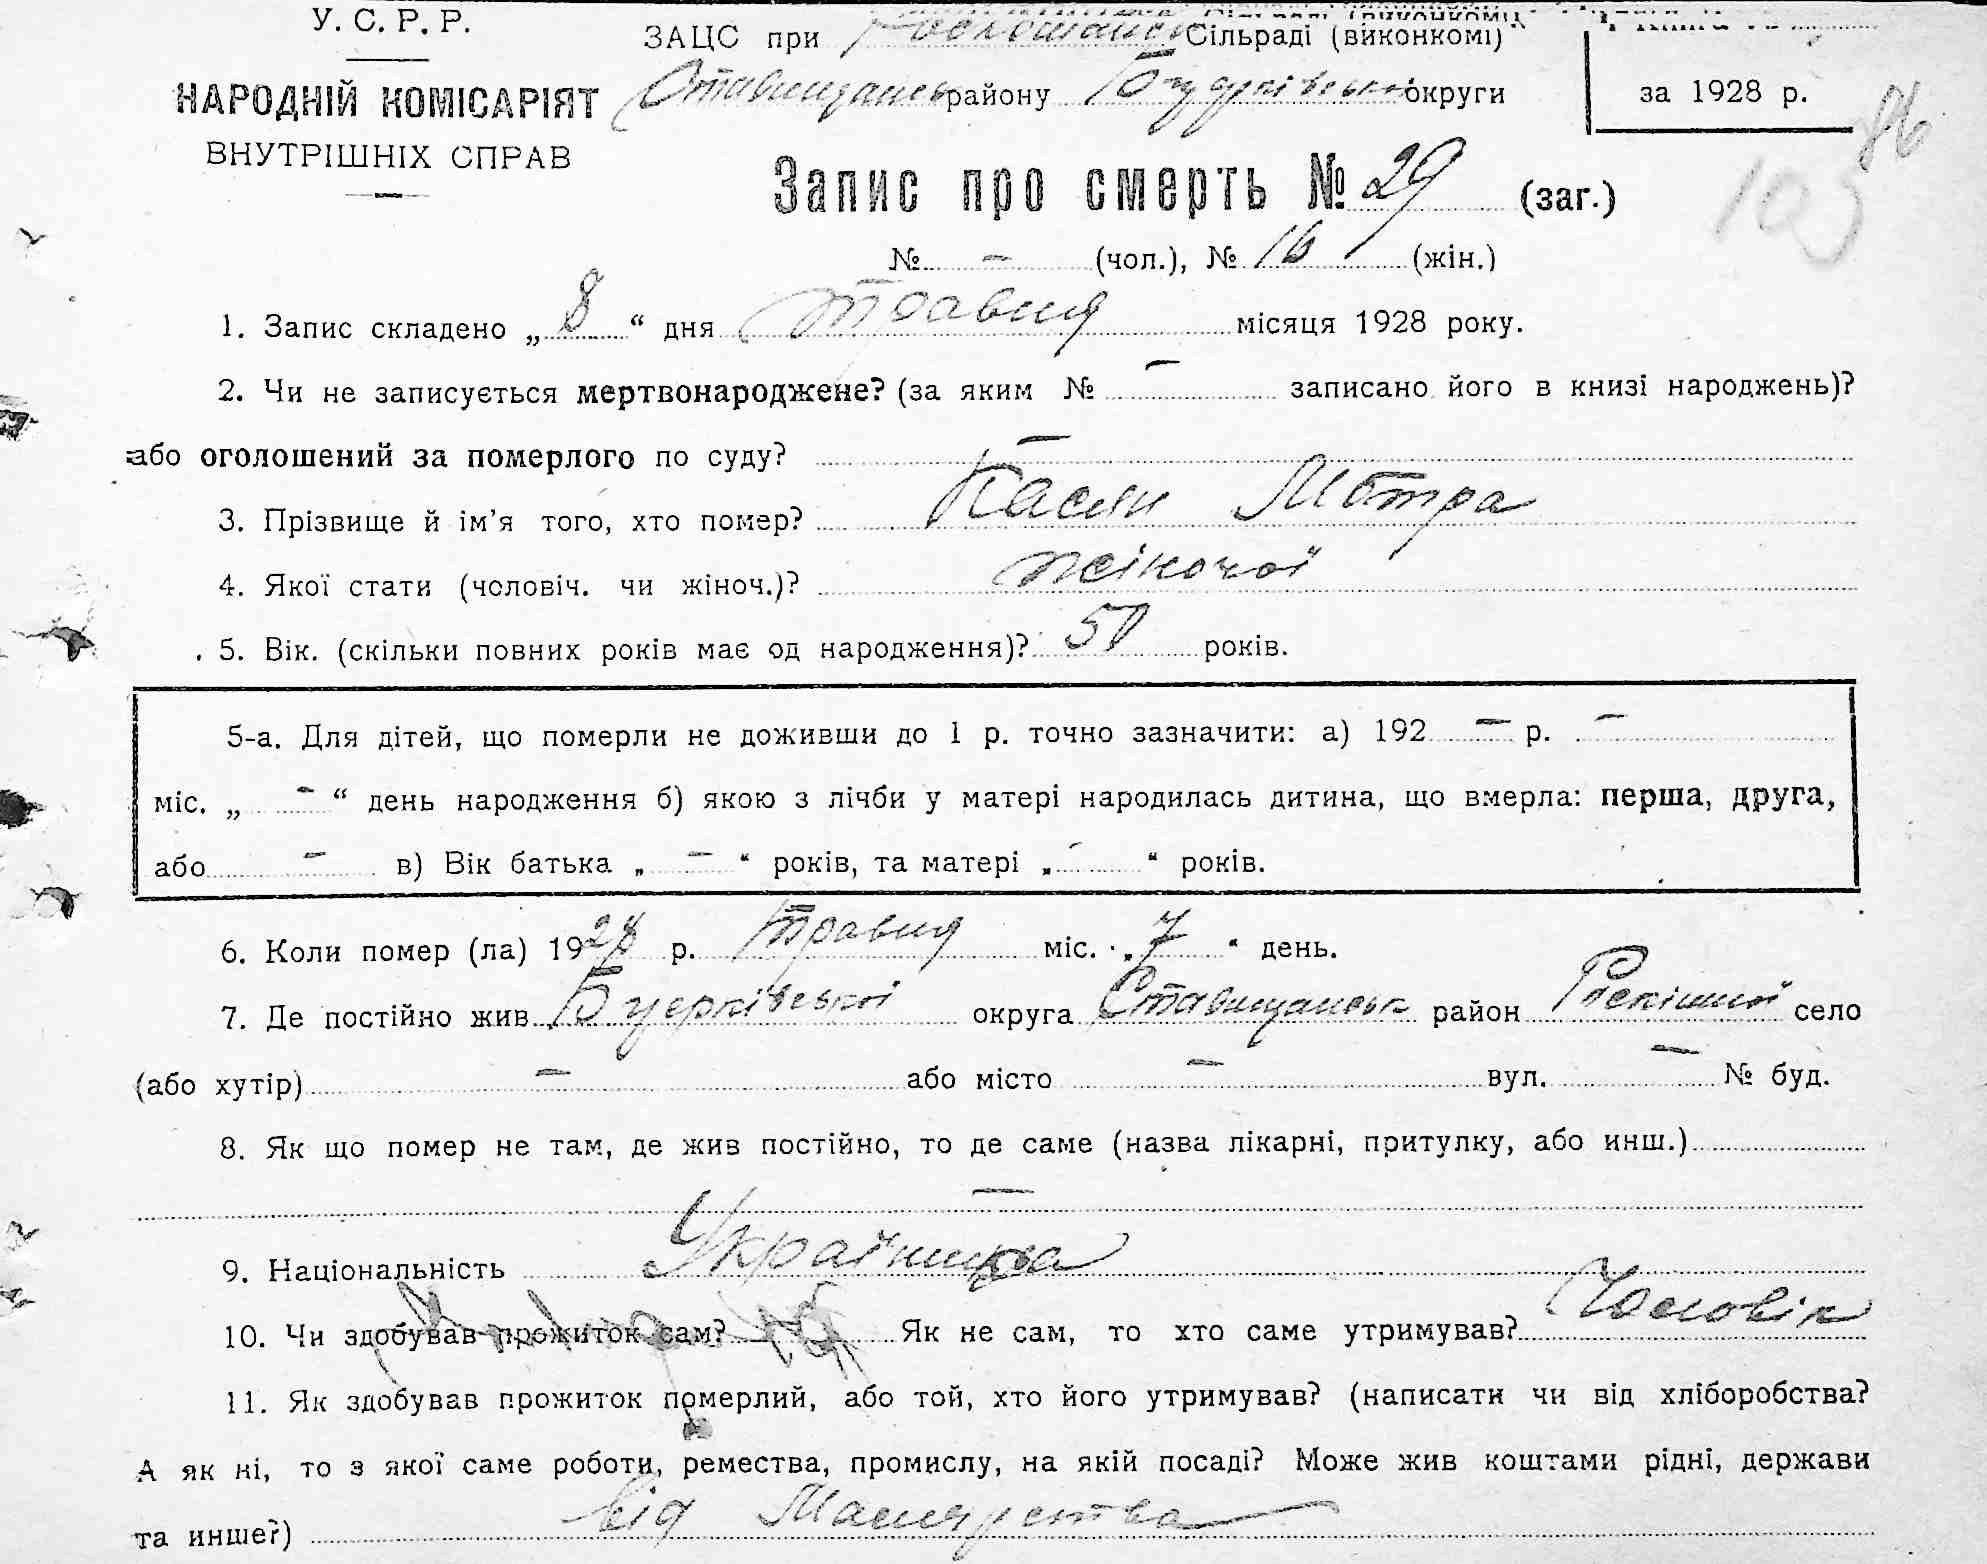 У. С. Р. Р.
НАРОДНІЙ КОМІСАРІЯТ
ВНУТРІШНІХ СПРАВ
ЗАЦС при Сільраді (виконкомі)
Ставищанськ району округи
за 1928 р.
86
Запис про смерть № 29 (заг.)
№ — (чол.), № 16 (жін.)
1. Запис складено „ 8 “ дня травня місяця 1928 року.
2. Чи не записується мертвонароджене? (за яким № — записано його в книзі народжень)?
або оголошений за померлого по суду? —
3. Прізвище й ім’я того, хто помер? Касян Мотра
4. Якої стати (чоловіч. чи жіноч.)? жіночої
5. Вік. (скільки повних років має од народження)? 50 років.
5-а. Для дітей, що померли не доживши до 1 р. точно зазначити: а) 192 — р. —
міс. „ — “ день народження б) якою з лічби у матері народилась дитина, що вмерла: перша, друга,
або — в) Вік батька „ — “ років, та матері „ - “ років.
6. Коли помер (ла) 1928 р. травня міс. „ 7 “ день.
7. Де постійно жив Буерківської округа Ставищанськ район Роскішної село
(або хутір) — або місто — вул. — № буд.
8. Як що помер не там, де жив постійно, то де саме (назва лікарні, притулку, або инш.)
—
9. Національність Українка
10. Чи здобував прожиток сам? Як не сам, то хто саме утримував? Чоловік
11. Як здобував прожиток померлий, або той, хто його утримував? (написати чи від хліборобства?
А як ні, то з якої саме роботи, ремества, промислу, на якій посаді? Може жив коштами рідні, держави
та инше?) від